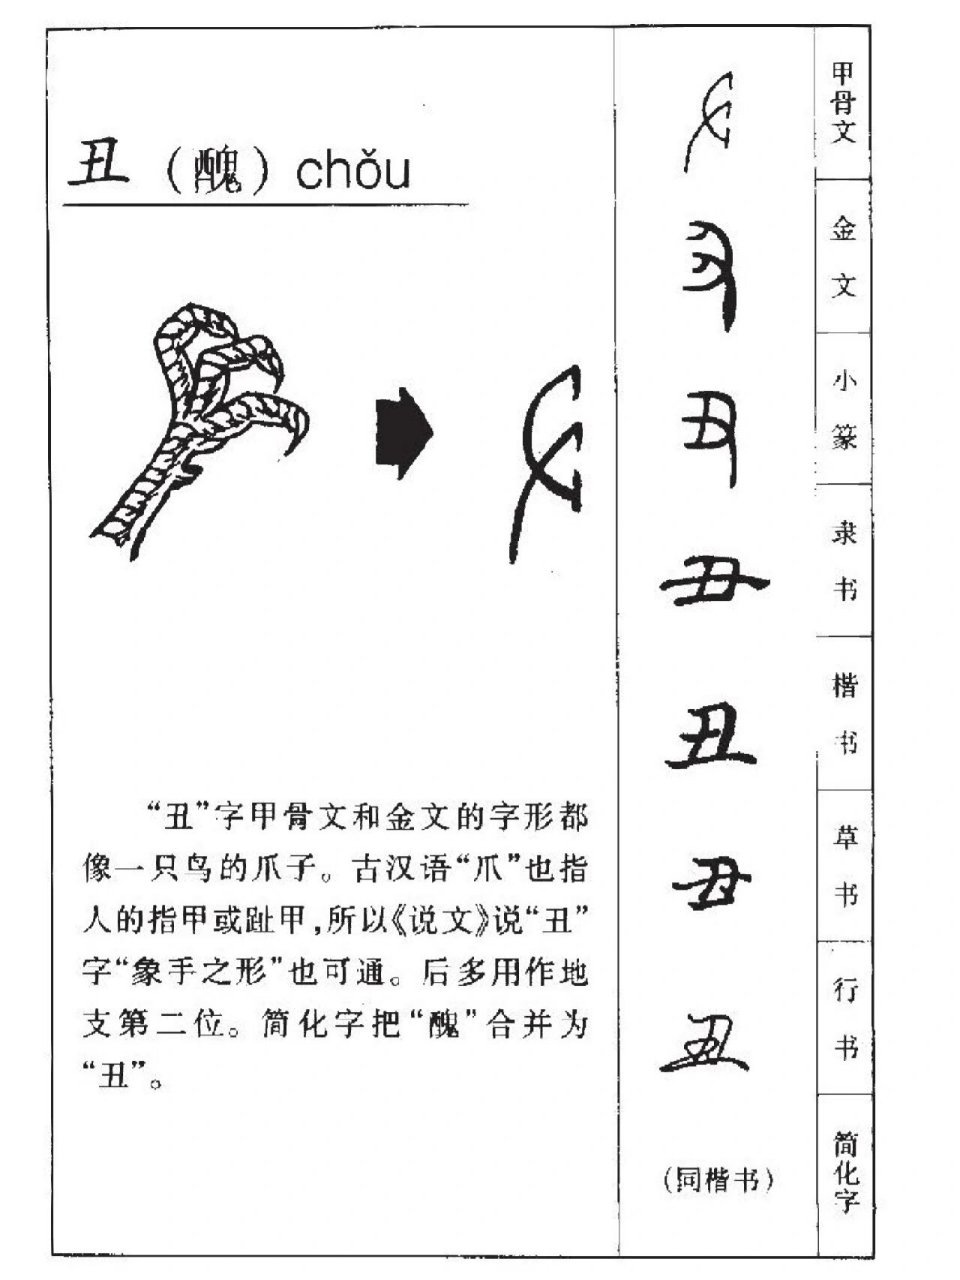 丑（醜）chǒu
“丑”字甲骨文和金文的字形都
像一只鸟的爪子。古汉语“爪”也指
人的指甲或趾甲,所以《说文》说“丑”
字“象手之形”也可通。后多用作地
支第二位。简化字把“醜”合并为
“丑”。
甲骨文
金文
小篆
丑
隶书
丑
楷书
丑
草书
丑
行书
丑
（同楷书）
简化字